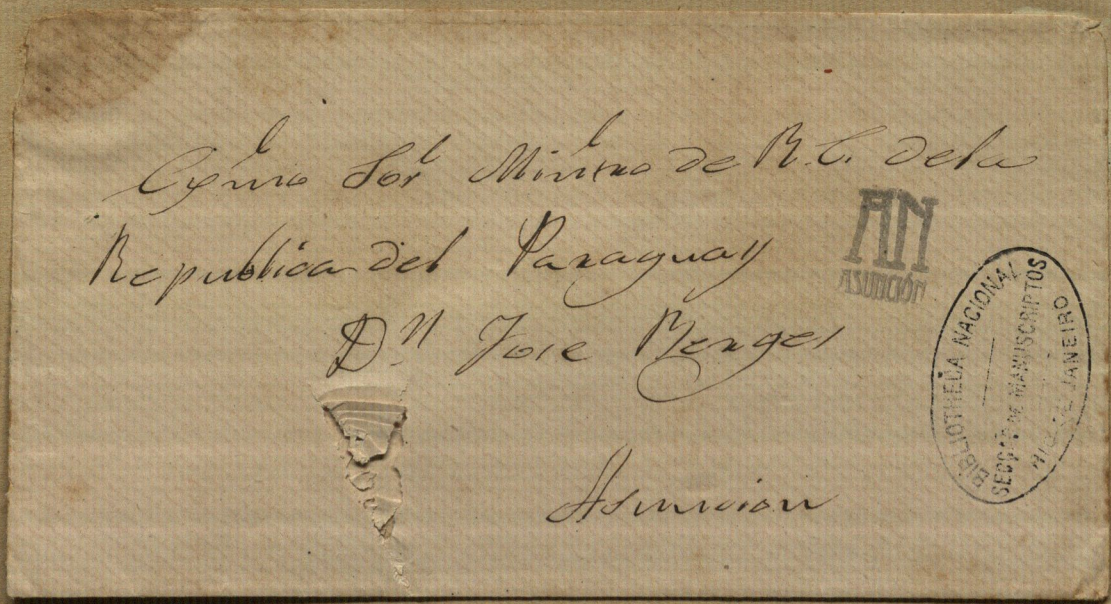 Exmo Sor Mintro de R. E. dela
Republica del Paraguay
Dn Jose Berges
Asuncion
AN
ASUNCIÓN
BIBLIOTHECA NACIONAL
SECÇÃO DE MANUSCRIPTOS
RIO DE JANEIRO